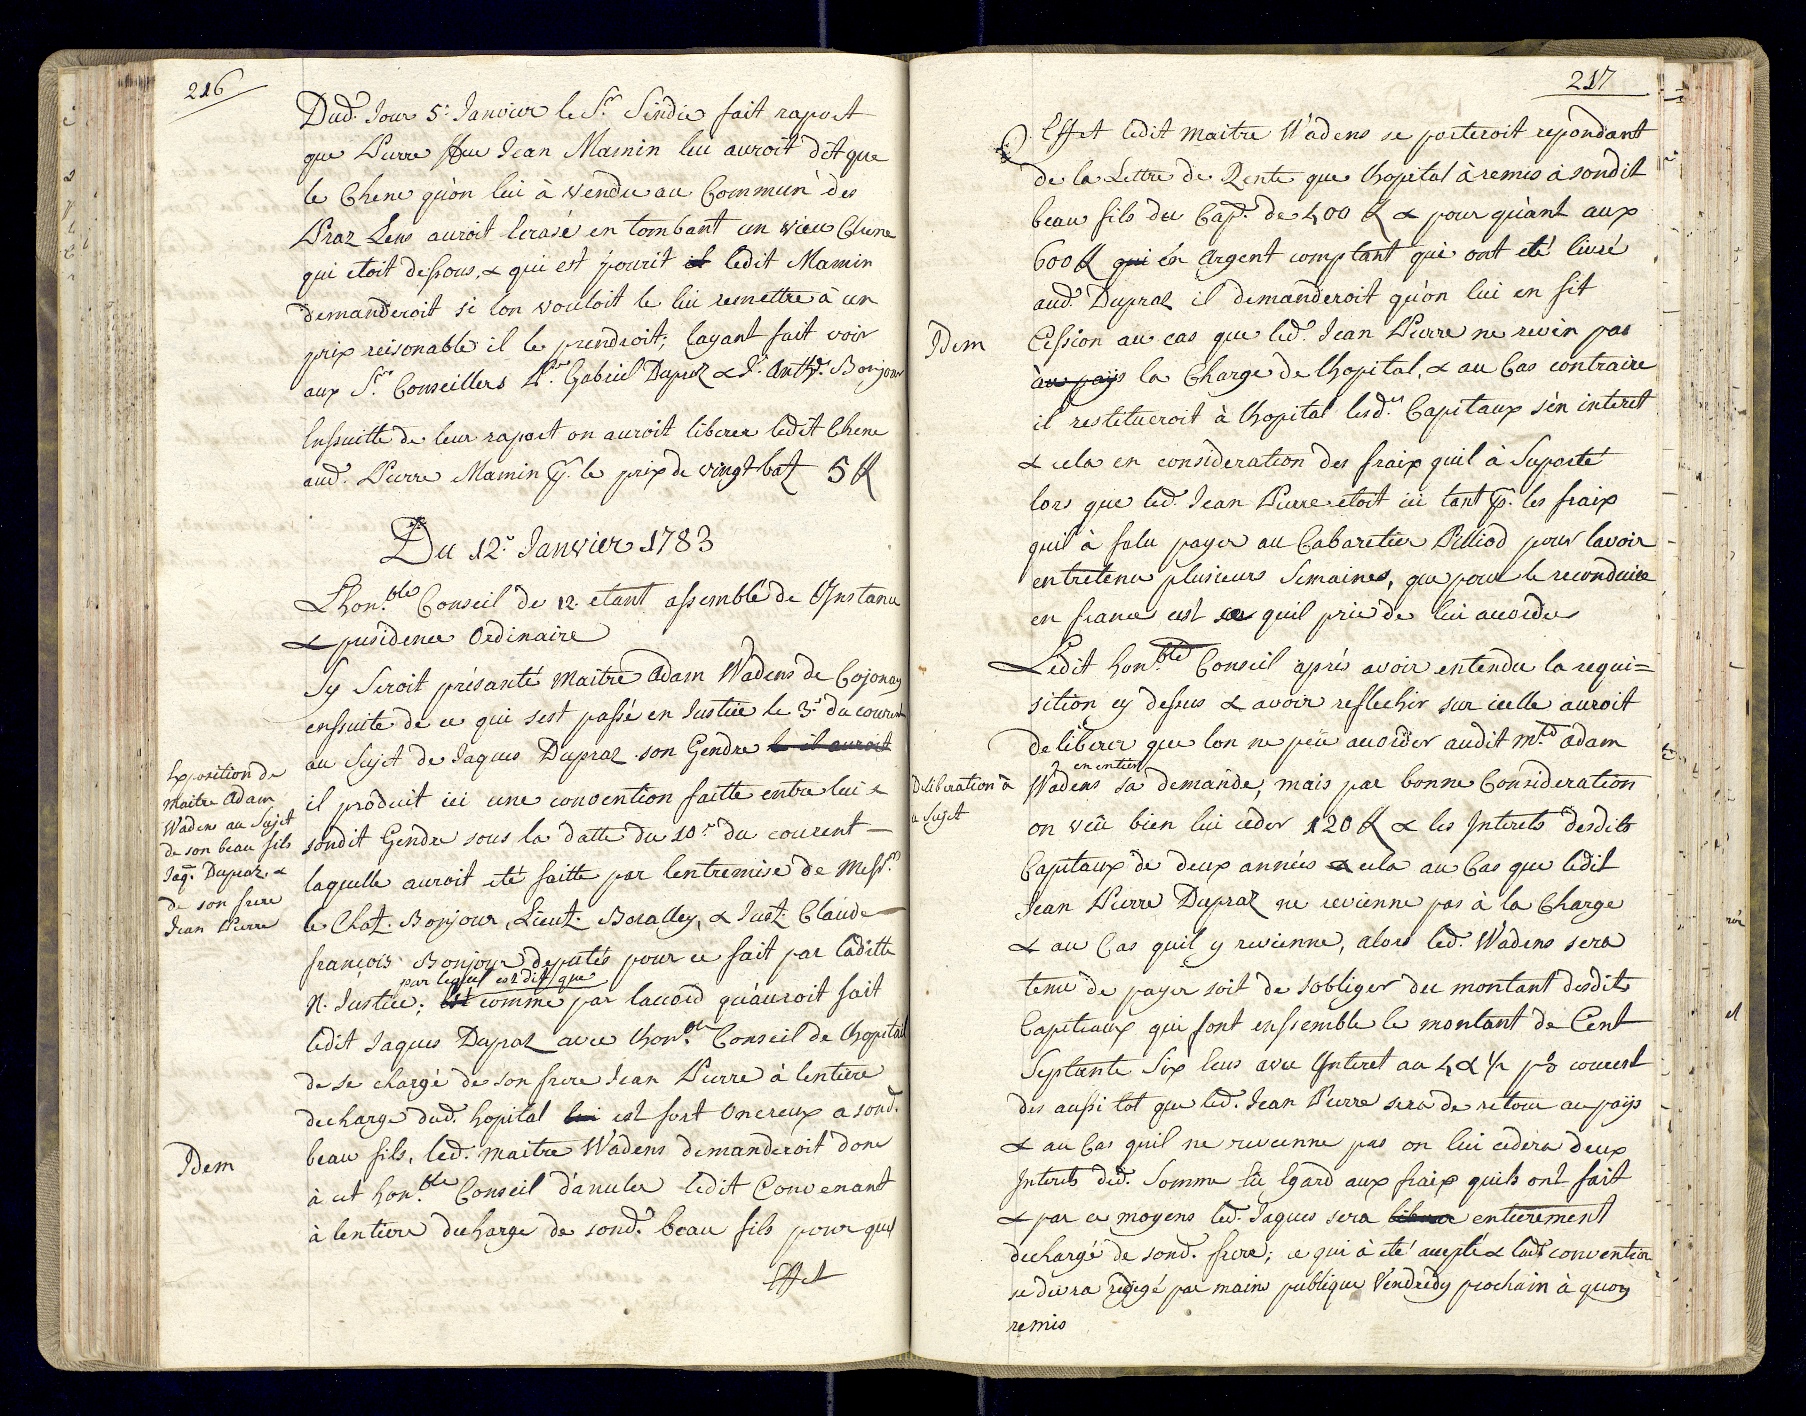 216
Dud. Jour 5.e Janvier le Sr. Sindic fait raport
que Pierre ffeu Jean Mamin lui auroit dit que
le Chene quon lui à vendu au Commun des
Praz Lens auroit Ecrasé en tombant un vieu Chene
qui etoit dessous, & qui est pourit ledit Mamin
demanderoit si lon vouloit le lui remettre à un
prix reisonable il le prendroit; layant fait voir
aux Srs. Conseillers Pre. Gabriel Dupraz & Jn. Anthe. Bonjour
Ensuitte de leur raport on auroit liberer ledit Chene
aud. Pierre Mamin p. le prix de vingt batz 5 ff
Du 12.e Janvier 1783
Lhon.ble Conseil de 12. etant assemblé de Instance
& presidence Ordinaire
Sy Seroit présanté Maitre Adam Wadens de Cojonay
ensuite de ce qui sest passé en Justice le 3.e du courent
au Sujet de Jaques Dupraz son Gendre le il auroit
Exposition de
maitre Adam
Wadens au Sujet
de son beau fils
Jaq. Dupraz, &
de son frere
Jean Pierre
il produit ici une convention faitte entre lui &
sondit Gendre sous la datte du 10.e du courent
laquelle auroit eté faitte par lentremise de Messrs.
le Chat. Bonjour, Lieut. Boralley, & Just. Claude
françois Bonjour deputés pour ce fait par laditte
par lequel est dit que
N. Justice; comme par laccord qu'auroit fait
ledit Jaques Dupraz avec lhon.ble Conseil de lhopital
de se chargé de son frere Jean Pierre à lentiere
decharge dud. hopital lui est fort Onereux a sond.
Idem
beau fils, led. maitre Wadens demanderoit donc
à cet hon.ble Conseil d'anuler ledit Convenant
à lentiere decharge de sond. beau fils pour quel
Effet
217
Effet ledit maitre Wadens se porteroit repondant
de la Lettre de Rente que lhopital à remis à sondit
beau fils du Cap. de 400 ff & pour qu'ant aux
600 ff qui en Argent comptant qui ont eté livré
aud. Dupraz il demanderoit qu'on lui en fit
Idem
Cession au cas que led. Jean Pierre ne revin pas
au pays la Charge de lhopital, & au Cas contraire
il restitueroit à lhopital lesd.es Capitaux s'en interet
& cela en consideration des fraix quil à Suporté
lors que led. Jean Pierre etoit ici tant p. les fraix
quil à falu payer au Cabaretier Pilliod pour lavoir
entretenu plusieurs Semaines, que pour le reconduire
en france cest ce quil prie de lui accorder
Ledit hon.ble Conseil aprés avoir entendu la requi=
sition cy dessus & avoir reflechir sur icelle auroit
deliberer que lon ne peü accorder audit m.tre Adam
en entier
Deliberation à
ce Sujet
Wadens sa demande, mais par bonne Consideration
on veü bien lui ceder 120 ff & les Interets desdits
Capitaux de deux années & cela au Cas que ledit
Jean Pierre Dupraz ne revienne pas à la Charge
& au Cas quil y revienne, alors led. Wadens sera
tenu de payer soit de sobliger du montant desdits
Capitaux qui font enssemble le montant de Cent
Septante Six Ecus avec Interet au 4 & 1/2 po courent
des aussi tot que led. Jean Pierre sera de retour au païs
& au Cas quil ne revienne pas on lui cedera deux
Interets dud. Somme eü Egard aux fraix quils ont fait
& par ce moyens led. Jaques sera liberer entierement
dechargé de sond. frere; ce qui à eté accepté & lad.e convention
se devra redigé par main publique Vendredy prochain à quoy
remis